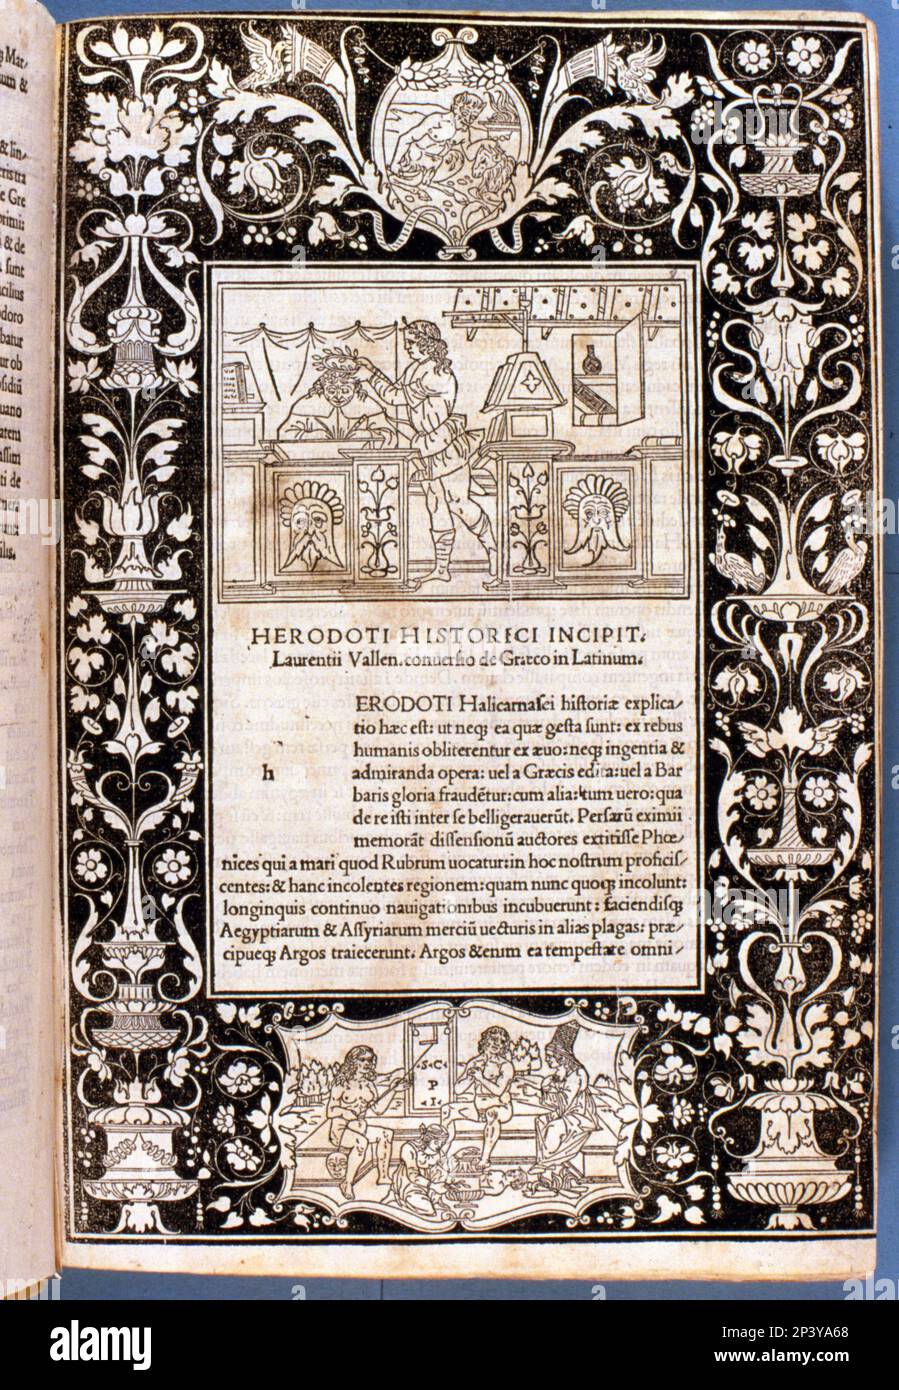 & de
sunt
ti de
HERODOTI HISTORICI INCIPIT.
Laurentii Vallen. conuersio de Græco in Latinum.
ERODOTI Halicarnasei historiæ explica/
tio hæc est: ut neqꝫ ea quæ gesta sunt: ex rebus
humanis obliterentur ex æuo: neqꝫ ingentia &
h admiranda opera: uel a Græcis edita: uel a Bar
baris gloria fraudētur: cum alia: tum uero: qua
de re isti inter se belligerauerūt. Persarū eximii
memorāt dissensionū auctores extitisse Phœ/
nices qui a mari quod Rubrum uocatur: in hoc nostrum proficis/
centes: & hanc incolentes regionem: quam nunc quoqꝫ incolunt:
longinquis continuo nauigationibus incubuerunt: faciendisqꝫ
Aegyptiarum & Assyriarum merciū uecturis in alias plagas: præ/
cipueqꝫ Argos traiecerunt. Argos & enim ea tempestate omni/
.S.C.
P
.I.
a
alamy
Image ID: 2P3YA68
www.alamy.com